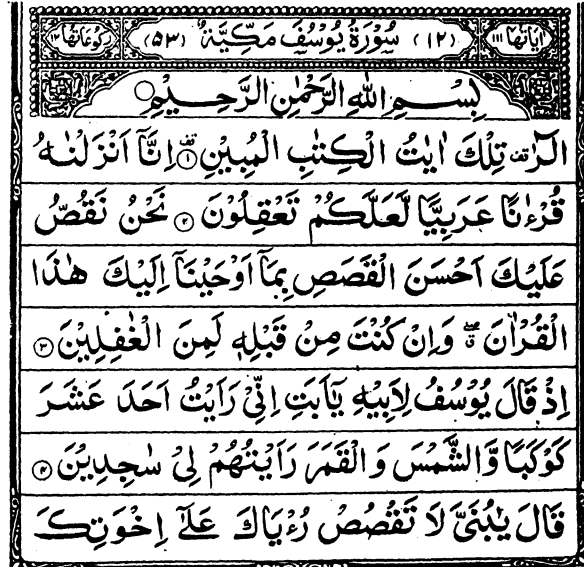 اٰيَاتُهَا ١١١ (١٢) سُوْرَةُ يُوْسُفَ مَكِّيَّةٌ (٥٣) رُكُوْعَاتُهَا ١٢
بِسْمِ اللّٰهِ الرَّحْمٰنِ الرَّحِيْمِ
الٓرٰ ۚ تِلْكَ اٰيٰتُ الْكِتٰبِ الْمُبِيْنِ ١ اِنَّآ اَنْزَلْنٰهُ
قُرْءٰنًا عَرَبِيًّا لَّعَلَّكُمْ تَعْقِلُوْنَ ٢ نَحْنُ نَقُصُّ
عَلَيْكَ اَحْسَنَ الْقَصَصِ بِمَآ اَوْحَيْنَآ اِلَيْكَ هٰذَا
الْقُرْاٰنَ وَاِنْ كُنْتَ مِنْ قَبْلِهٖ لَمِنَ الْغٰفِلِيْنَ ٣
اِذْ قَالَ يُوْسُفُ لِاَبِيْهِ يٰٓاَبَتِ اِنِّيْ رَاَيْتُ اَحَدَ عَشَرَ
كَوْكَبًا وَّالشَّمْسَ وَالْقَمَرَ رَاَيْتُهُمْ لِيْ سٰجِدِيْنَ ٤
قَالَ يٰبُنَيَّ لَا تَقْصُصْ رُءْيَاكَ عَلٰٓى اِخْوَتِكَ